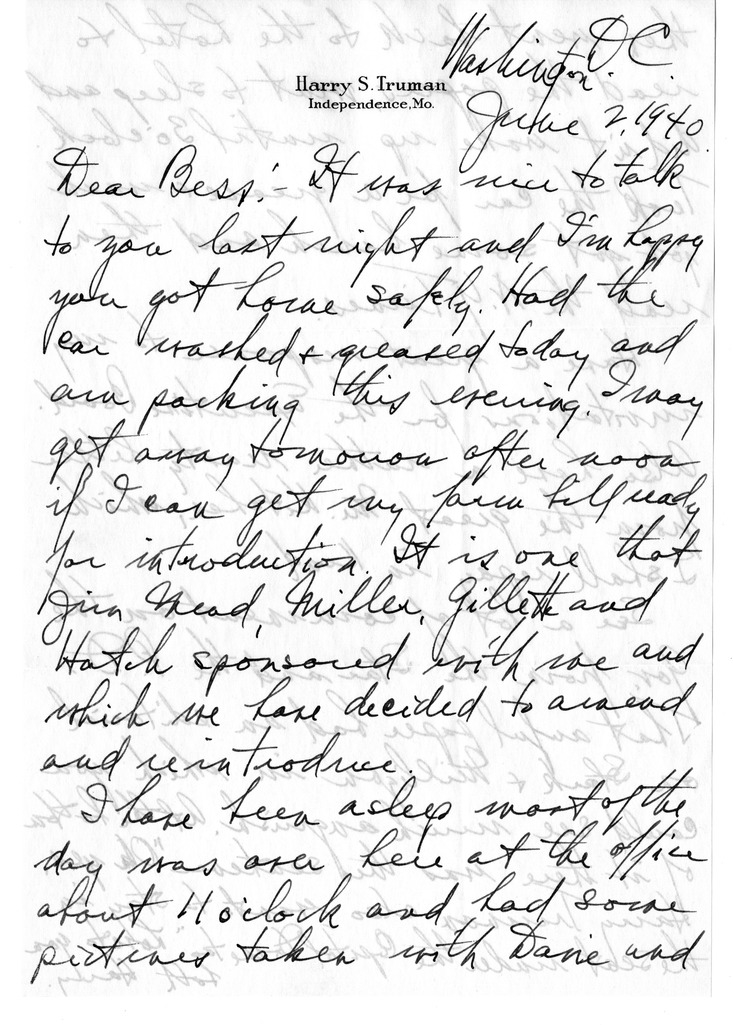 Washington D.C.
Harry S. Truman
Independence, Mo.
June 2, 1940.
Dear Bess:- It was nice to talk
to you last night and I'm happy
you got home safely. Had the
car washed & greased today and
am packing this evening. I may
get away tomorrow after noon
if I can get my farm bill ready
for introduction. It is one that
Jim Mead, Miller, Gillette and
Hatch sponsored with me and
which we have decided to amend
and reintroduce.
I have been asleep most of the
day was over here at the office
about 11 o'clock and had some
pictures taken with Dave and